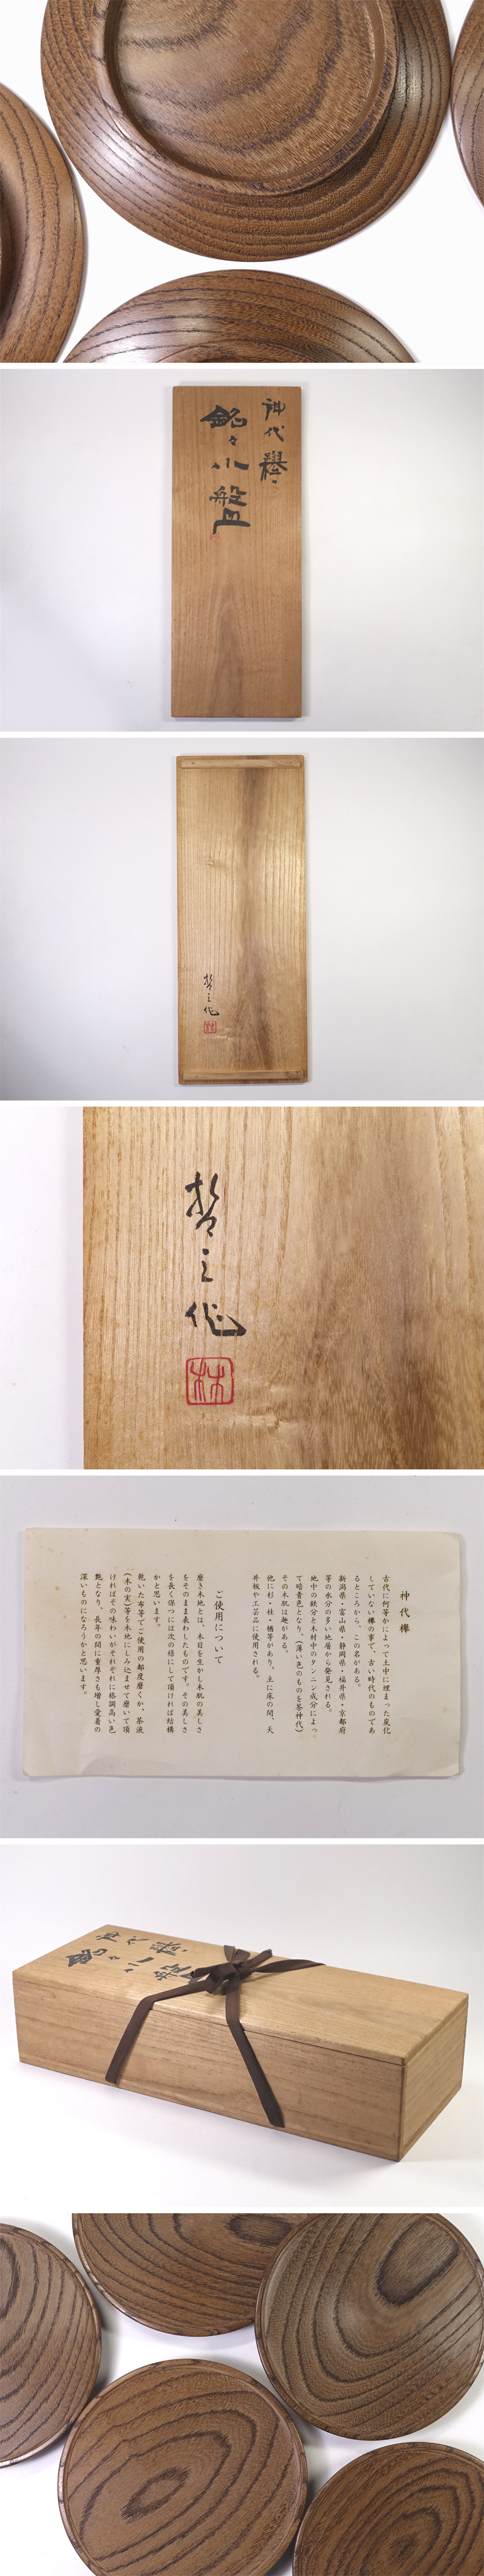 神代欅
銘々小盤
哲之作
林
哲之作
林
神代欅
古代に何等かによって土中に埋まった炭化
していない欅の事で、古い時代のものであ
るところから、この名がある。
新潟県・富山県・静岡県・福井県・京都府
等の水分の多い地層から発見される。
地中の鉄分と木材中のタンニン成分によっ
て暗青色となり、(薄い色のものを茶神代)
その木肌は趣がある。
他に杉・桂・楢等があり、主に床の間、天
井板や工芸品に使用される。
ご使用について
磨き木地とは、木目を生かし木肌の美しさ
をそのまま表わしたものです。その美しさ
を長く保つには次の様にして頂ければ結構
かと思います。
乾いた布等でご使用の都度磨くか、茶液
(木の実)等を木地にしみ込ませて磨いて頂
ければその味わいがそれぞれに格調高い色
艶となり、長年の間に重厚さも増し愛着の
深いものになろうかと思います。
神代欅
銘々小盤